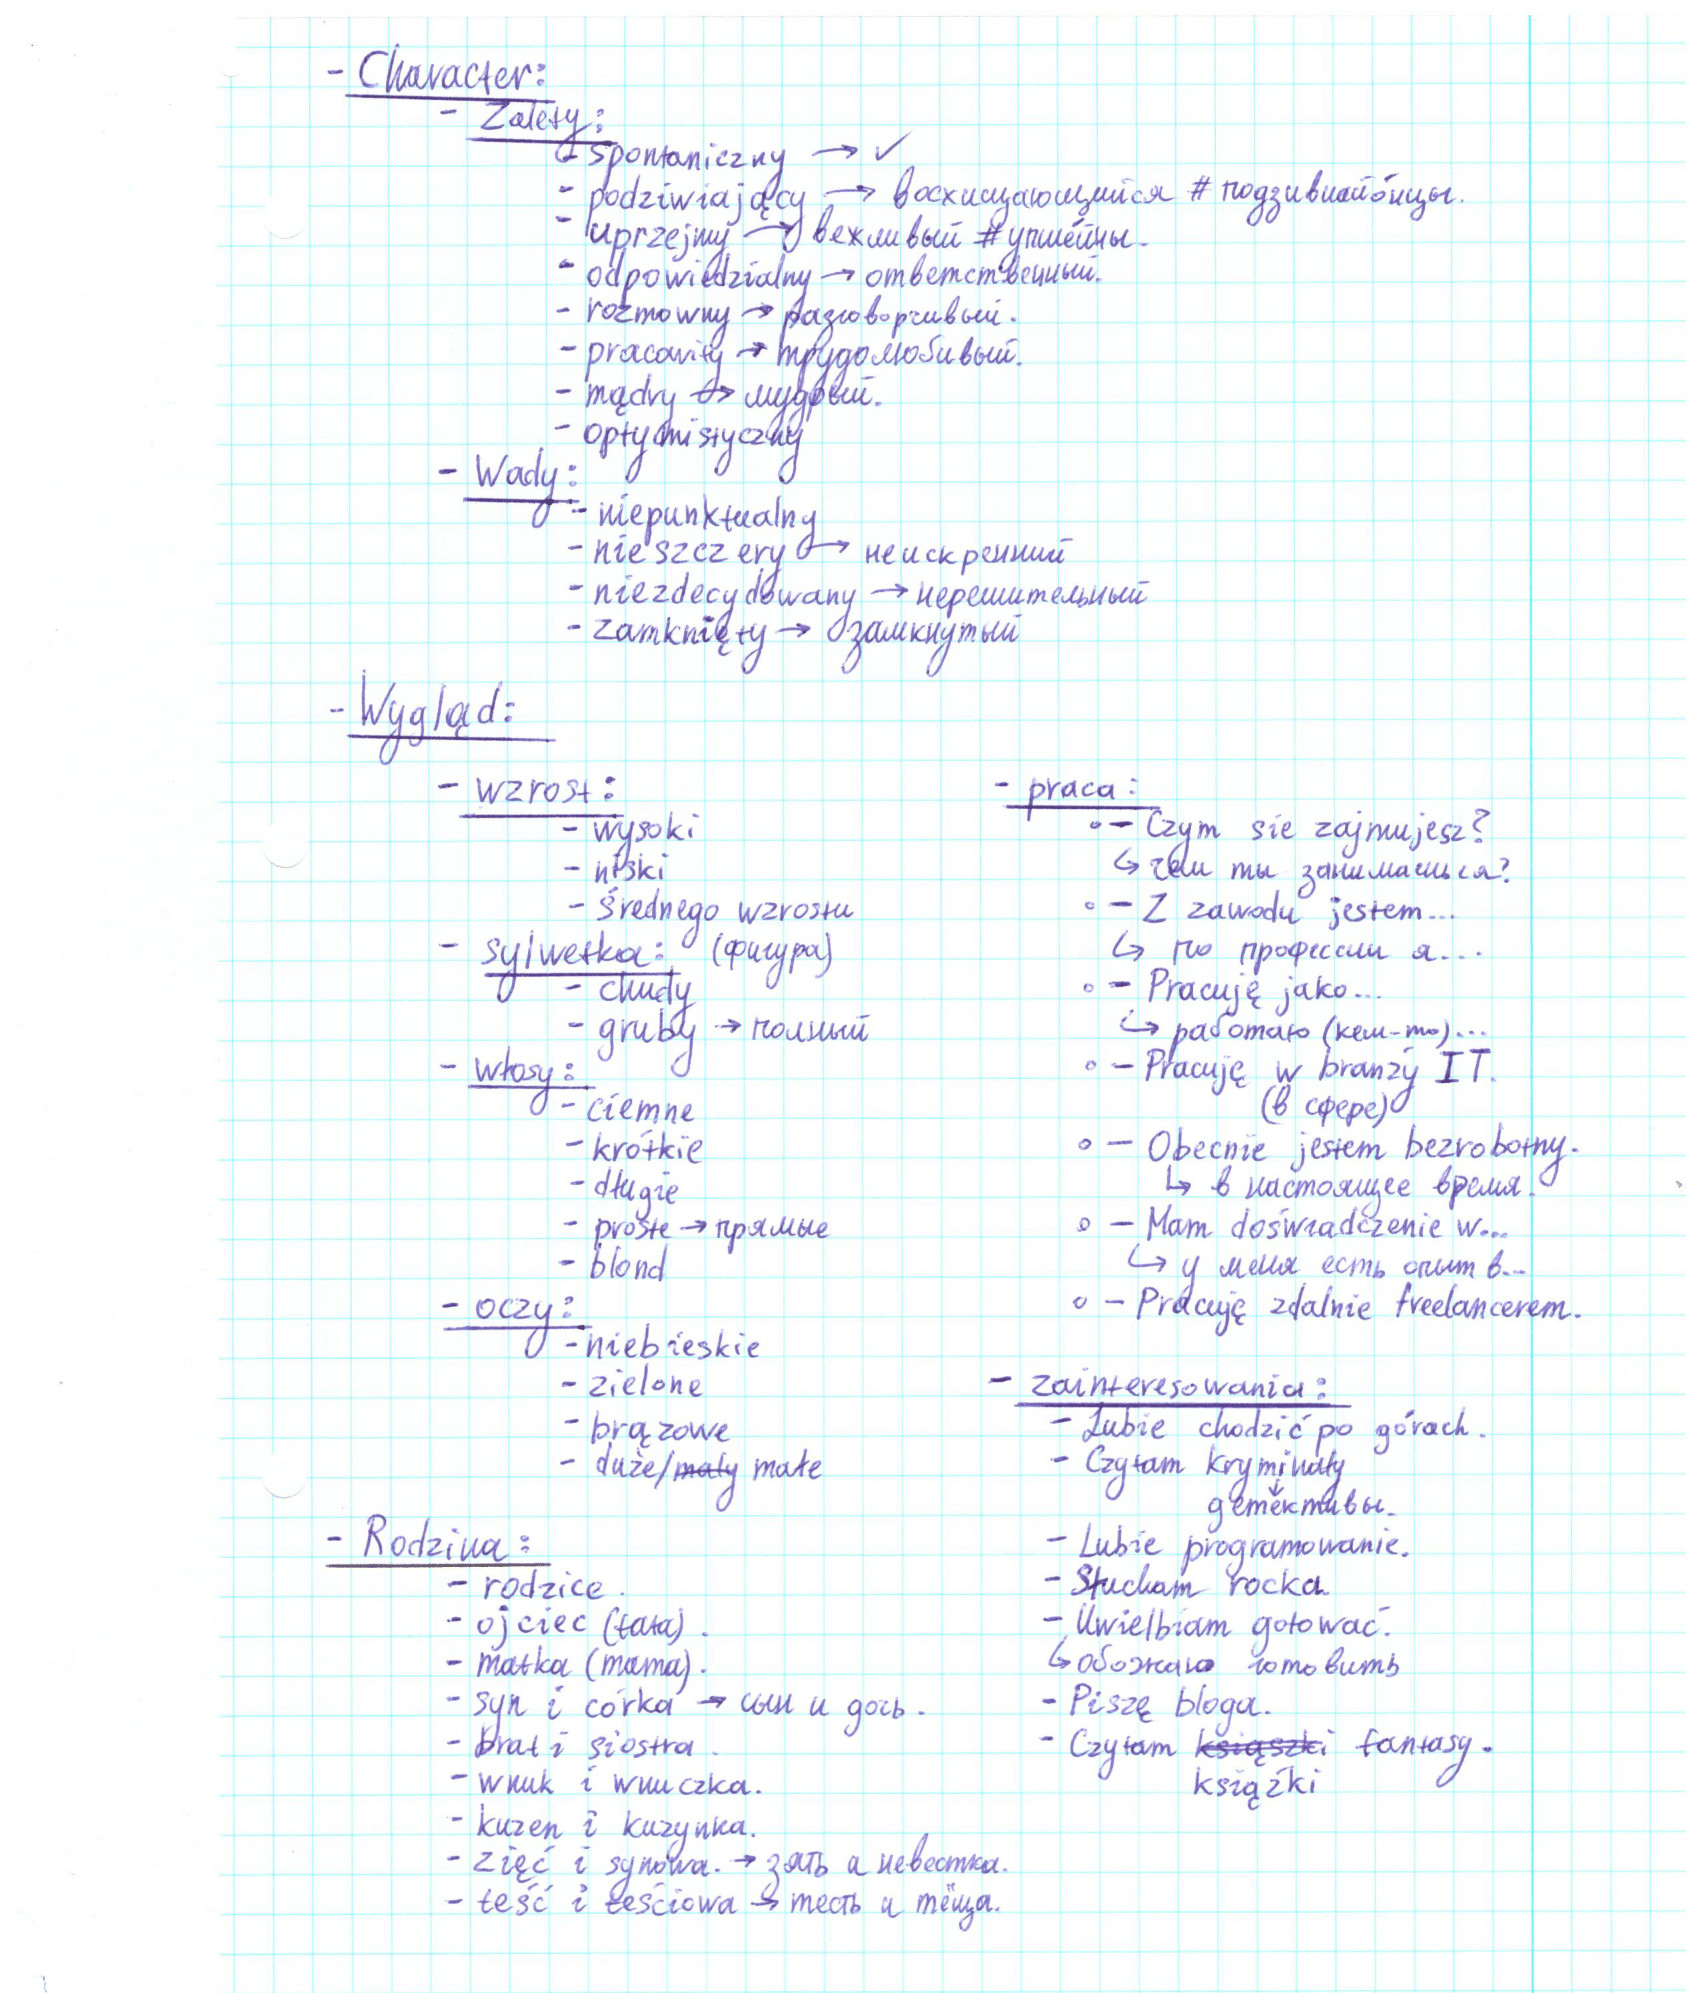 - Character:
- Zalety:
- spontaniczny → ✓
- podziwiający → восхищающийся # подзивиайо́нцы.
- uprzejmy → вежливый # упше́йны.
- odpowiedzialny → ответственный.
- rozmowny → разговорчивый.
- pracowity → трудолюбивый.
- mądry → мудрый.
- optymistyczny
- Wady:
- niepunktualny
- nieszczery → неискренний
- niezdecydowany → нерешительный
- zamknięty → замкнутый
- Wygląd:
- wzrost:
- wysoki
- niski
- średnego wzrostu
- sylwetka: (фигура)
- chudy
- gruby → полный
- włosy:
- ciemne
- krótkie
- długie
- proste → прямые
- blond
- oczy:
- niebieskie
- zielone
- brązowe
- duże/mały małe
- Rodzina:
- rodzice.
- ojciec (tata).
- matka (mama).
- syn i córka → сын и дочь.
- brat i siostra.
- wnuk i wnuczka.
- kuzen i kuzynka.
- zięć i synowa. → зять и невестка.
- teść i teściowa → тесть и тёща.
- praca:
- Czym sie zajmujesz?
↳ чем ты занимаешься?
- Z zawodu jestem...
↳ по профессии я...
- Pracuję jako...
↳ работаю (кем-то)...
- Pracuję w branży IT.
(в сфере)
- Obecnie jestem bezrobotny.
↳ в настоящее время.
- Mam doświadczenie w...
↳ у меня есть опыт в...
- Pracuję zdalnie freelancerem.
- zainteresowania:
- Lubie chodzić po górach.
- Czytam kryminały
↓
детективы.
- Lubie programowanie.
- Słucham rocka.
- Uwielbiam gotować.
↳ обожаю готовить
- Piszę bloga.
- Czytam ksiąszki fantasy.
książki